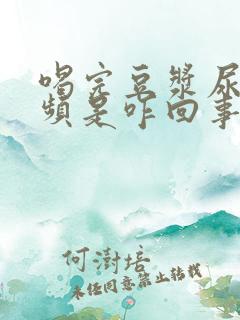 喝完豆漿尿
頻是咋回事
何澍培
未经同意禁止转载